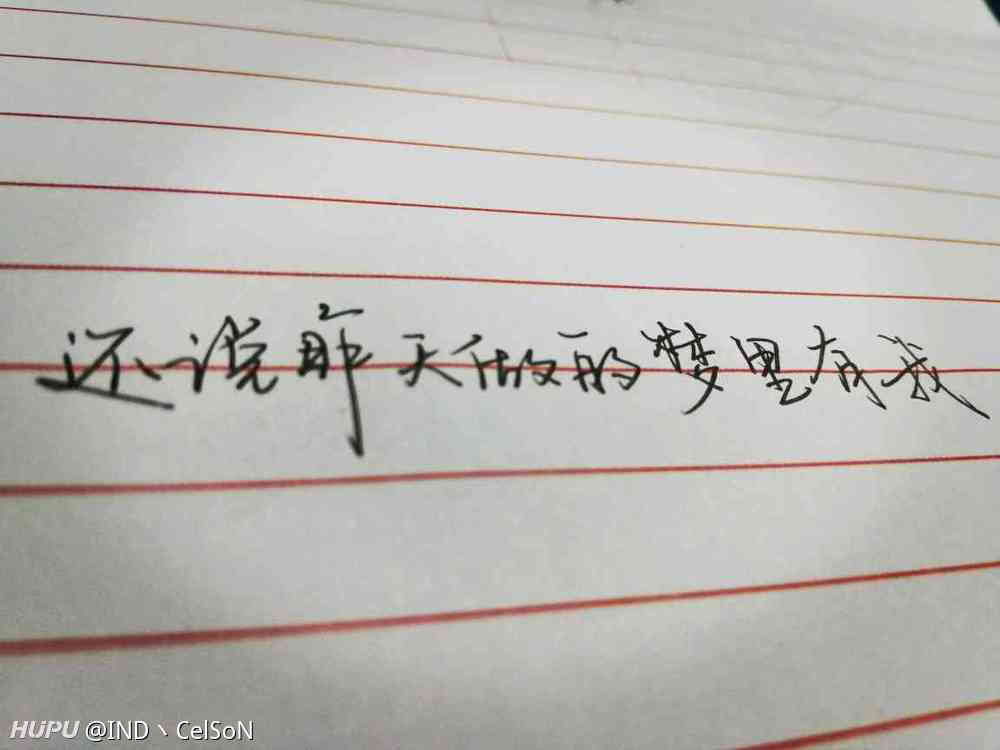 还说昨天做的梦里有我
HUPU @IND丶CelSoN